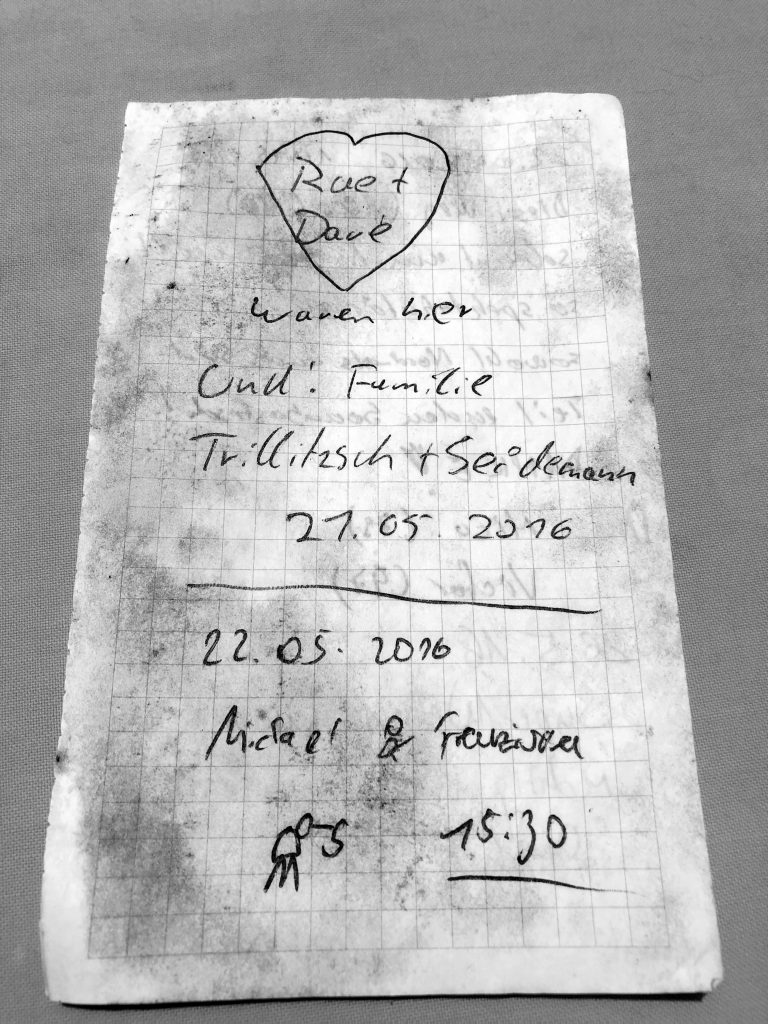 Rae +
Dave
waren hier
Und: Familie
Trillitzsch + Seidemann
21.05.2016
22.05.2016
Michael & Franziska
15:30